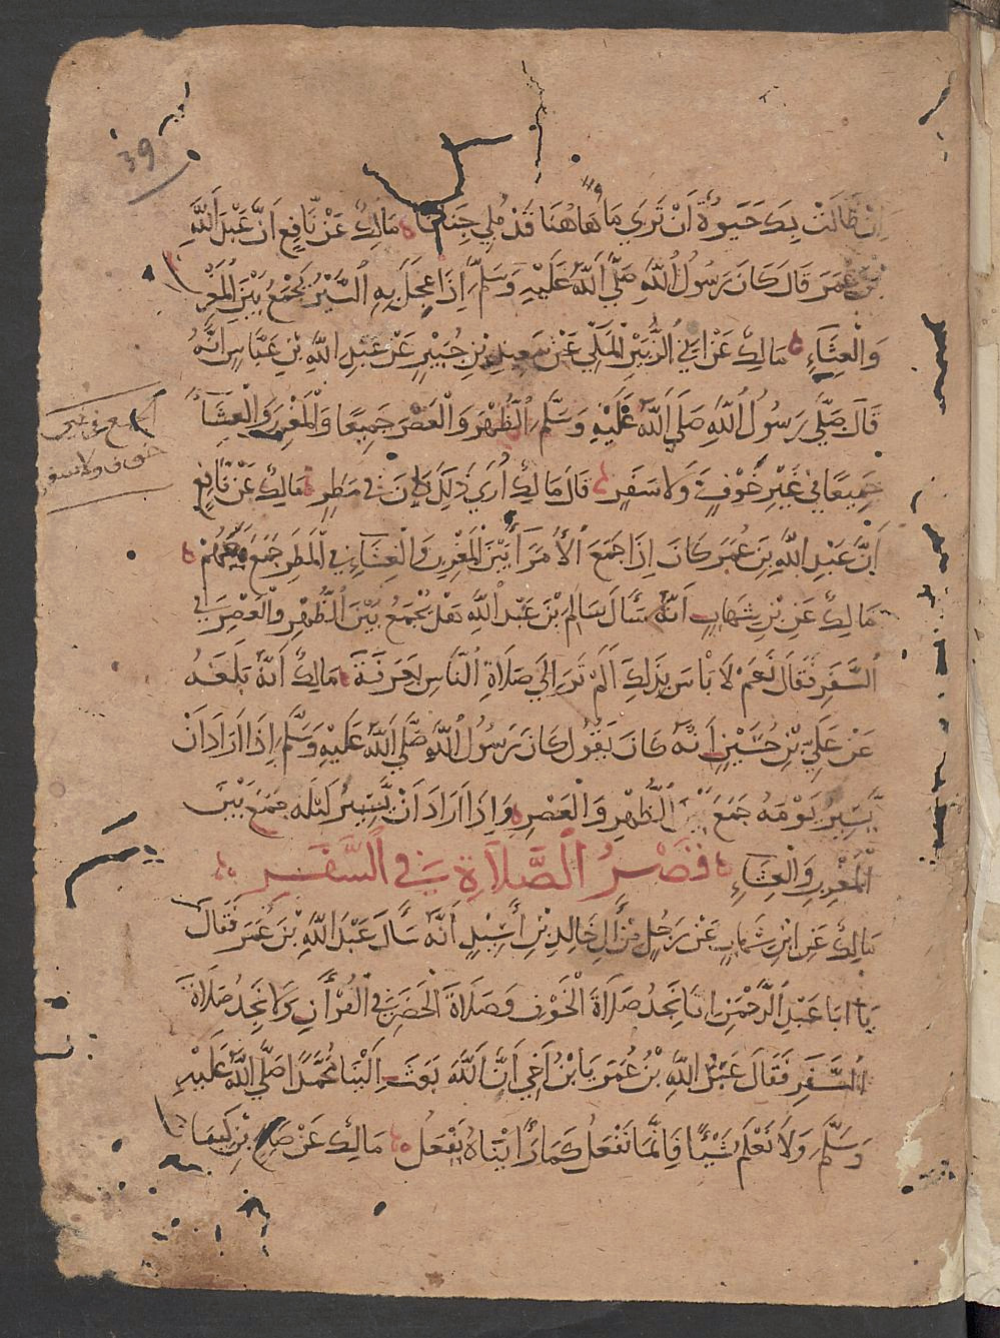 39
إن طالت بك حيوة أن ترى ما هاهنا قد ملي جنانا مالك عن نافع أن عبد الله
بن عمر قال كان رسول الله صلى الله عليه وسلم إذا عجل به السير يجمع بين المغرب
والعشاء مالك عن أبي الزبير المكي عن سعيد بن جبير عن عبد الله بن عباس أنه
قال صلى رسول الله صلى الله عليه وسلم الظهر والعصر جميعا والمغرب والعشاء
جميعا في غير خوف ولا سفر قال مالك أرى ذلك كان في مطر مالك عن نافع
أن عبد الله بن عمر كان إذا جمع الأمراء بين المغرب والعشاء في المطر جمع معهم
مالك عن بن شهاب أنه سأل سالم بن عبد الله هل يجمع بين الظهر والعصر في
السفر فقال نعم لا بأس بذلك ألم تر إلى صلاة الناس بعرفة مالك أنه بلغه
عن علي بن حسين أنه كان يقول كان رسول الله صلى الله عليه وسلم إذا أراد أن
يسير يومه جمع بين الظهر والعصر وإذا أراد أن يسير ليله جمع بين
المغرب والعشاء قصر الصلاة في السفر
مالك عن ابن شهاب عن رجل من آل خالد بن أسيد أنه سأل عبد الله بن عمر فقال
يا أبا عبد الرحمن إنا نجد صلاة الخوف وصلاة الحضر في القرآن ولا نجد صلاة
السفر فقال عبد الله بن عمر يا بن أخي أن الله بعث إلينا محمدا صلى الله عليه
وسلم ولا نعلم شيئا فإنما نفعل كما رأيناه يفعل مالك عن صالح بن كيسان
خوف ولا سفر